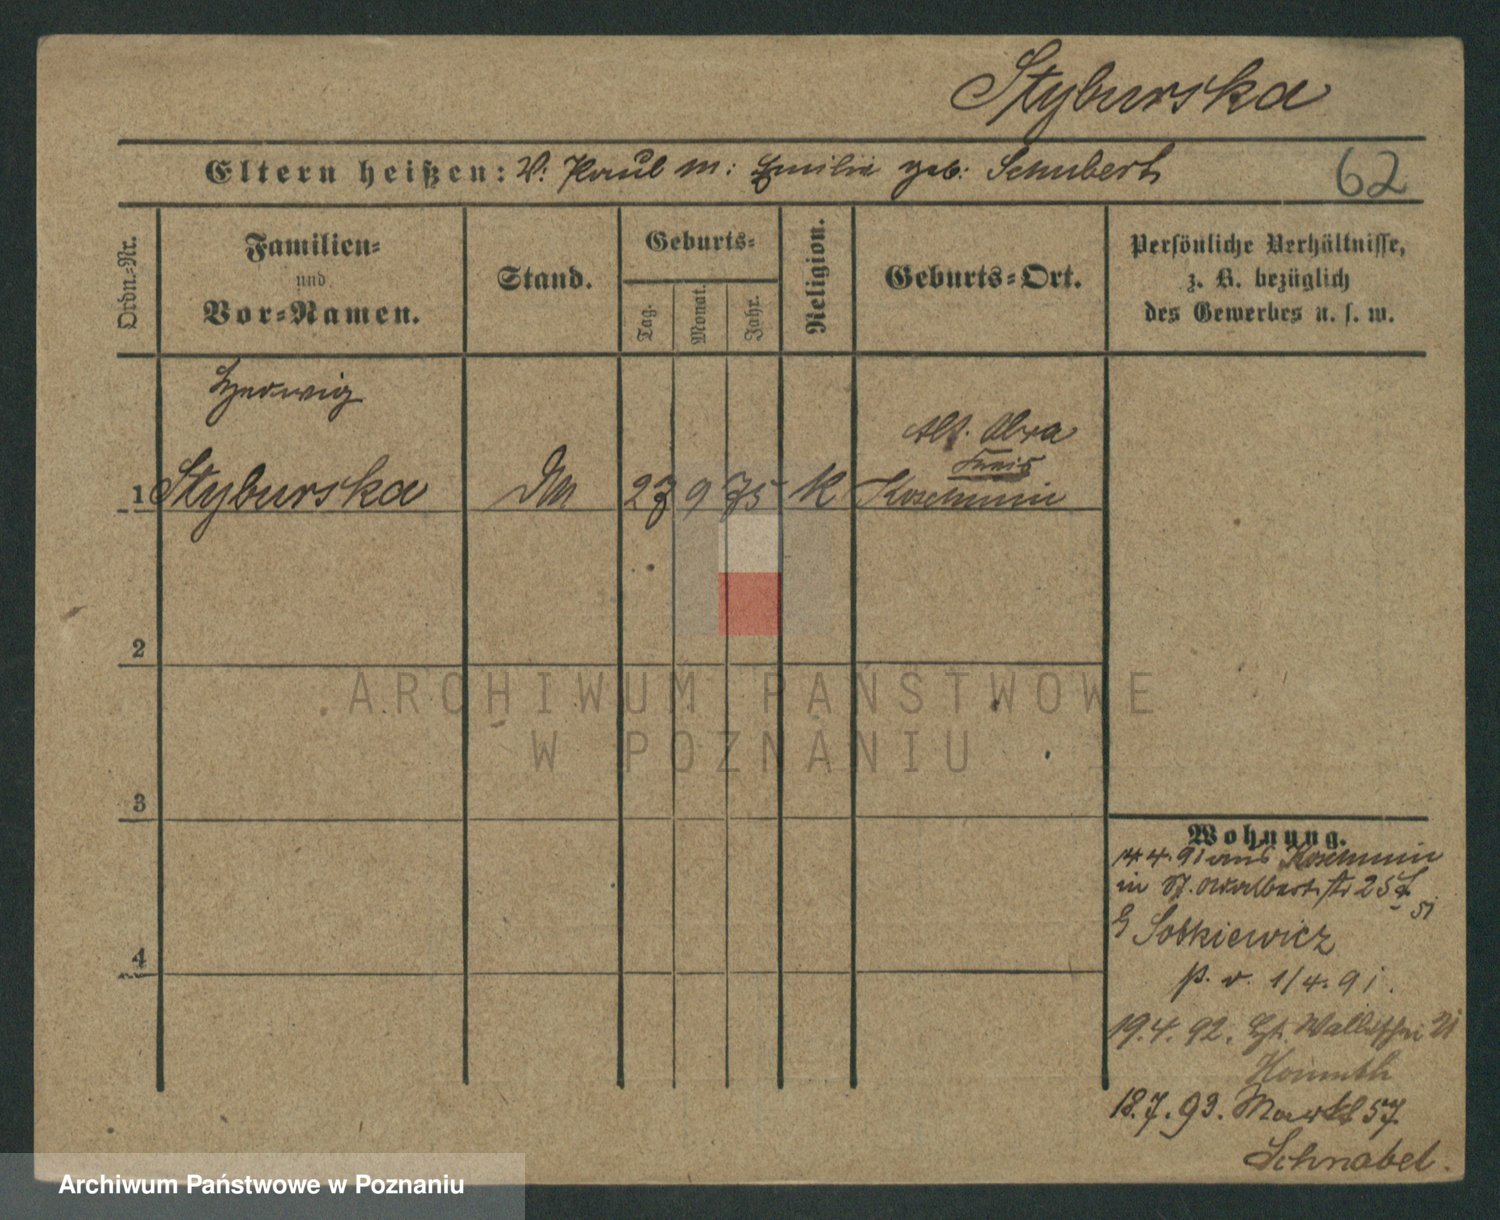 Styburska
Eltern heißen: V: Paul M: Emilie geb: Schubert
62
Ordn.-Nr.
Familien-
und
Vor-Namen.
Stand.
Geburts-
Tag.
Monat.
Jahr.
Religion.
Geburts-Ort.
Persönliche Verhältnisse,
z. B. bezüglich
des Gewerbes u. s. w.
Hedwig
Alt. Obra
Kreis
1 Styburska 27 9 75 K Koschmin
2
3
4
Wohnung.
4.91 aus Koschmin
in St. Adalbert str 25
Sobkiewicz
p. v. 1/4. 91.
19.4.92. Wallischei
18.7.93. Markt 57
Schnabel.
ARCHIWUM PAŃSTWOWE
W POZNANIU
Archiwum Państwowe w Poznaniu